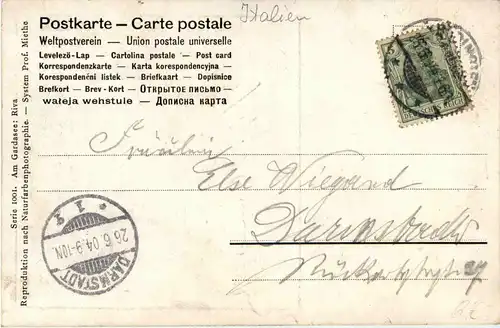 Italien
Postkarte — Carte postale
Weltpostverein — Union postale universelle
Levelező-Lap — Cartolina postale — Post card
Korrespondenzkarte — Karta korespondencyjna —
Korespondenční lístek — Briefkaart — Dopisnice
Brefkort — Brev-Kort — Открытое письмо —
wałeja wehstule — Дописна карта
Serie 1001. Am Gardasee: Riva
Reproduktion nach Naturfarbenphotographie. — System Prof. Miethe
Fräulein
Else Wiegand
Darmstadt
27
DARMSTADT
26.6.04.9-10N.
* 1 3